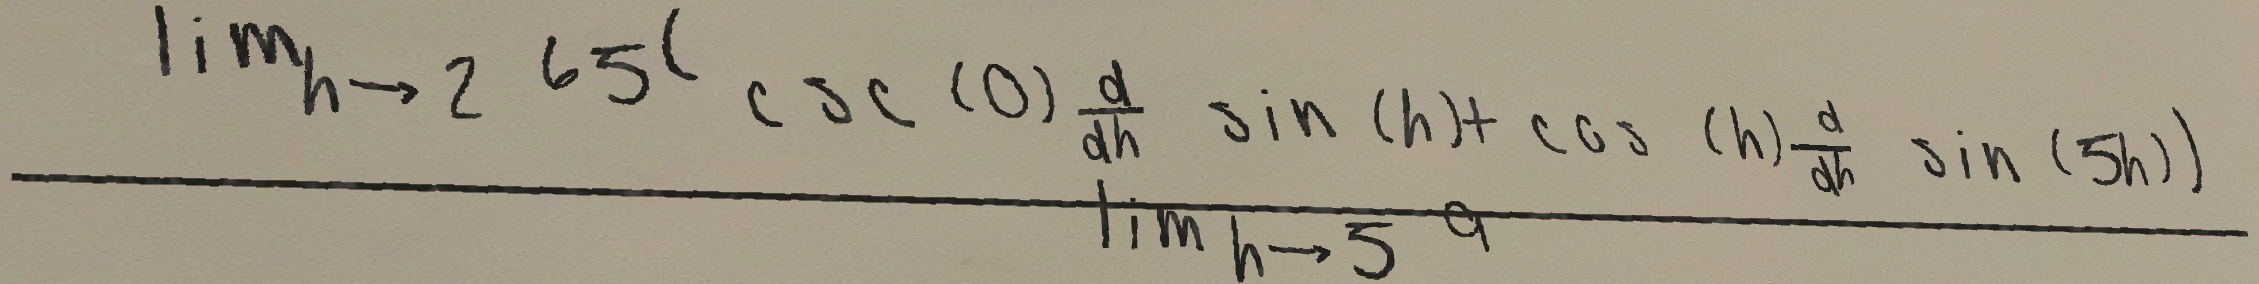 lim h→2 65( csc (0) d/dh sin (h)+ cos (h) d/dh sin (5h))
lim h→5 9